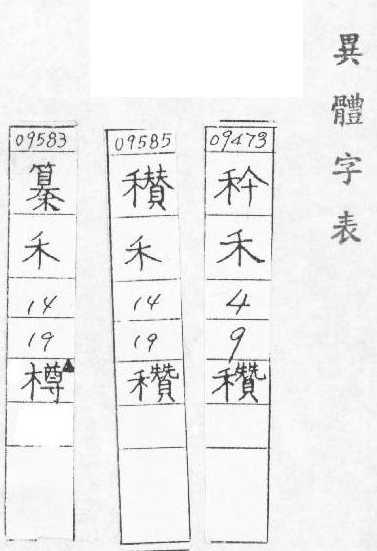 異體字表
09473
禾
4
9
穳
09585
禾
14
19
穳
09583
禾
14
19
樽